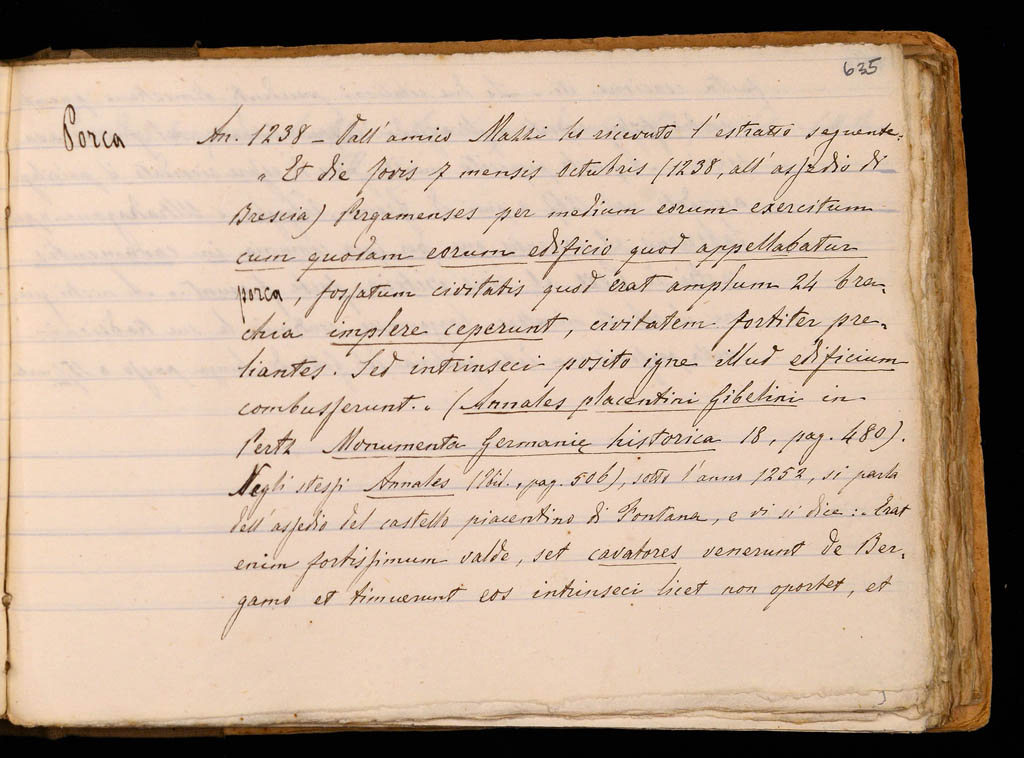 635
Porca
An. 1238 – Dall'amico Mazzi ho ricevuto l'estratto seguente:
"Et die Jovis 7 mensis octubris (1238, all'assedio di
Brescia) Pergamenses per medium eorum exercitum
cum quodam eorum edificio quod appellabatur
porca, fossatum civitatis quod erat amplum 24 bra-
chia implere ceperunt, civitatem fortiter pre-
liantes. Sed intrinseci posito igne illud edificium
combusserunt." (Annales placentini Gibelini in
Pertz Monumenta Germanię historica 18, pag. 480).
Negli stessi Annales (Ibid., pag. 506), sotto l'anno 1252, si parla
dell'assedio del castello piacentino di Fontana, e vi si dice: "Erat
enim fortissimum valde, set cavatores venerunt de Ber-
gamo et timuerunt eos intrinseci licet non oportet, et